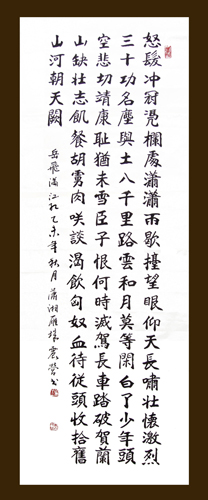 怒髮冲冠凭欄處瀟瀟雨歇擡望眼仰天長嘯壯懷激烈
三十功名塵與土八千里路雲和月莫等閑白了少年頭
空悲切靖康耻猶未雪臣子恨何時滅駕長車踏破賀蘭
山缺壯志飢餐胡虜肉咲談渴飲匈奴血待從頭收拾舊
山河朝天闕
岳飛滿江紅乙未年秋月瀟湘雁